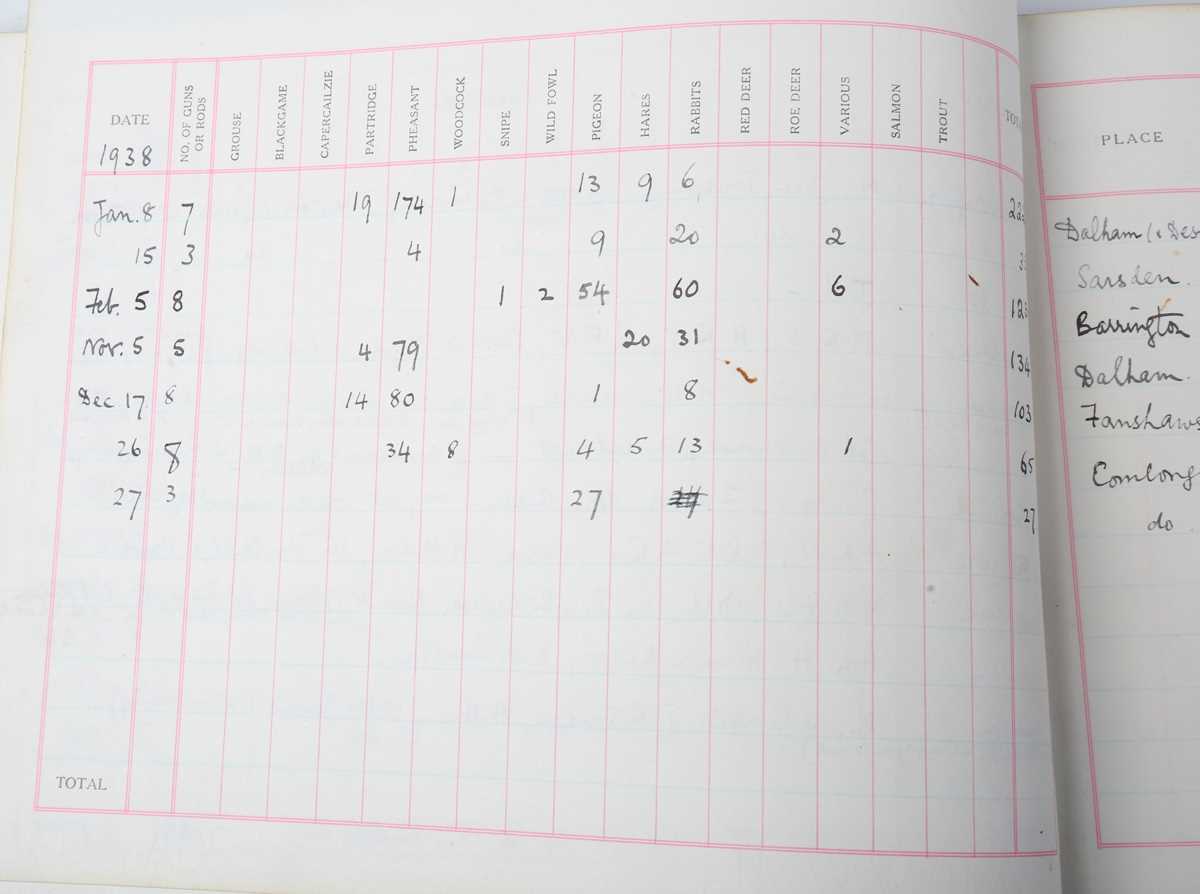 DATE NO. OF GUNS OR RODS GROUSE BLACKGAME CAPERCAILZIE PARTRIDGE PHEASANT WOODCOCK SNIPE WILD FOWL PIGEON HARES RABBITS RED DEER ROE DEER VARIOUS SALMON TROUT PLACE
1938
Jan. 8 7 19 174 1 13 9 6 Dalham
15 3 4 9 20 2 Sarsden.
Feb. 5 8 1 2 54 60 6 Barrington
Nov. 5 5 4 79 20 31 134 Dalham.
Dec 17 8 14 80 1 8 103 Fanshaws
26 8 34 8 4 5 13 1 65 Comlong
27 3 27 27 do.
TOTAL